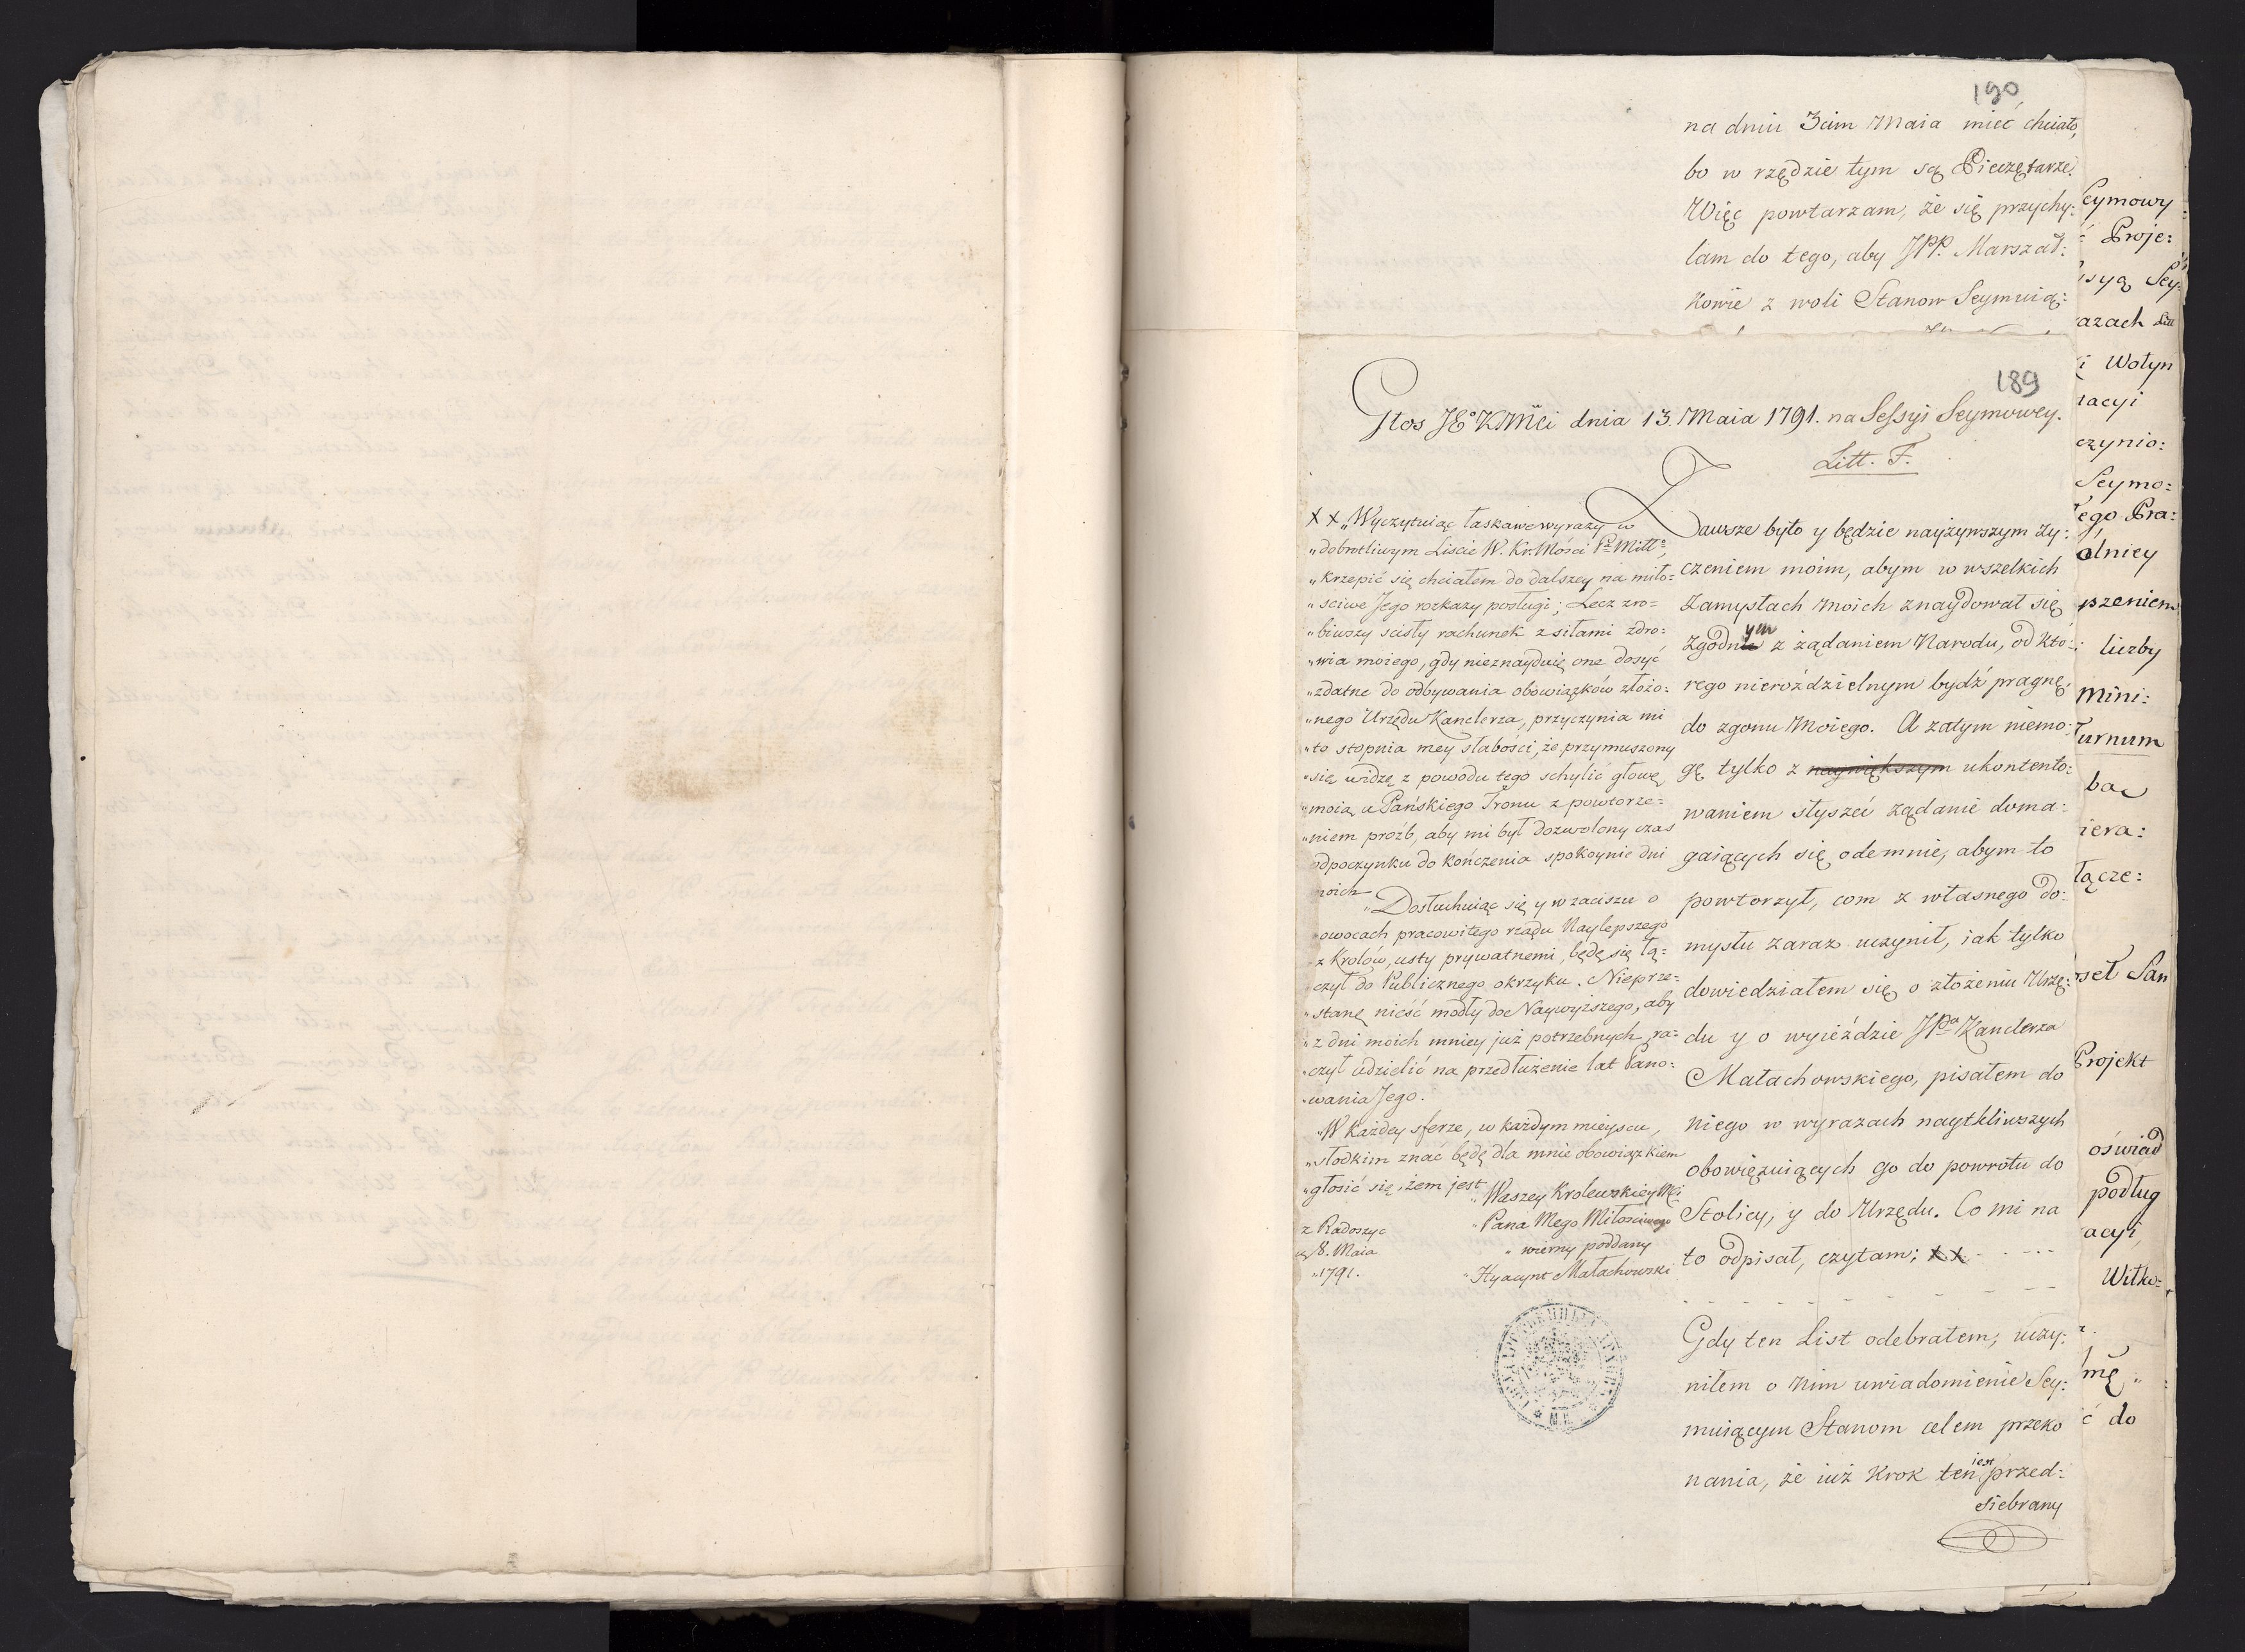 190
na dniu 3cim Maia mieć chciało,
bo w rzędzie tym są Pieczętarze.
Więc powtarzam, że się przychy:
lam do tego, aby JPP. Marszał:
kowie z woli Stanow Seymuią:
189
Głos JEº KMci dnia 13. Maia 1791. na Sessyi Seymowey.
Litt. F.
Zawsze było y będzie nayżywszym ży:
czeniem moim, abym w wszelkich
Zamysłach moich znaydował się
zgodnym z żądaniem Narodu, od któ:
rego nierozdzielnym bydź pragnę,
do zgonu Moiego. A zatym niemo:
gę tylko z naywiększym ukontento:
waniem słyszeć żądanie doma:
gaiących się odemnie, abym to
powtorzył, com z własnego do:
mysłu zaraz uczynił, iak tylko
dowiedziałem się o złożeniu Urzę:
du y o wyieździe JPa Kanclerza
Małachowskiego, pisałem do
niego w wyrazach naytkliwszych
obowięzuiących go do powrotu do
Stolicy, y do Urzędu. Co mi na
to odpisał, czytam; XX - - ...
Gdy ten List odebrałem, uczy:
niłem o nim uwiadomienie Sey:
muiącym Stanom celem przeko
nania, że iuż krok ten iest przed:
siebrany
XX „Wyczytuiąc łaskawe wyrazy w
„dobrotliwym Liscie W. Kr. Mości Pa Miłłº,
„krzepić się chciałem do dalszey na miło=
„sciwe Jego rozkazy posługi; Lecz zro=
„biwszy scisły rachunek z siłami zdro:
„wia moiego, gdy nieznayduię one dosyć
„zdatne do odbywania obowiązków złożo:
„nego Urzędu Kanclerza, przyczynia mi
„to stopnia mey słabości, że przymuszony
„się widzę z powodu tego schylić głowę
„moią u Pańskiego Tronu z powtorze=
„niem proźb, aby mi był dozwolony czas
odpoczynku do kończenia spokoynie dni
moich
„Dosłuchuiąc się y w zaciszu o
owocach pracowitego rządu Naylepszego
z Krolów, usty prywatnemi, będę się łą=
czył do Publicznego okrzyku. Nieprze=
„stanę nieść modły do Naywyższego, aby
„z dni moich mniey już potrzebnych ra=
„czył udzielić na przedłużenie lat Pano:
„wania Jego.
„W każdey sferze, w każdym mieyscu,
„słodkim znać będę dla mnie obowiązkiem
„głosić się, żem jest
„Waszey Krolewskiey Mci
„Pana Mego Miłosciwego
„wierny poddany
„Hyacynt Małachowski
z Radoszyc
8. Maia
„1791.
Seymowy
Proje:
syą Sey:
azach
Wołyn
acyi
czynio:
Seymo:
ego Pra:
olniey
pzeniem
liczby
Mini:
turnum
bac
iera:
łącze:
seł San
Projekt
oświad
podług
acyi,
Witko=
mę
ć do